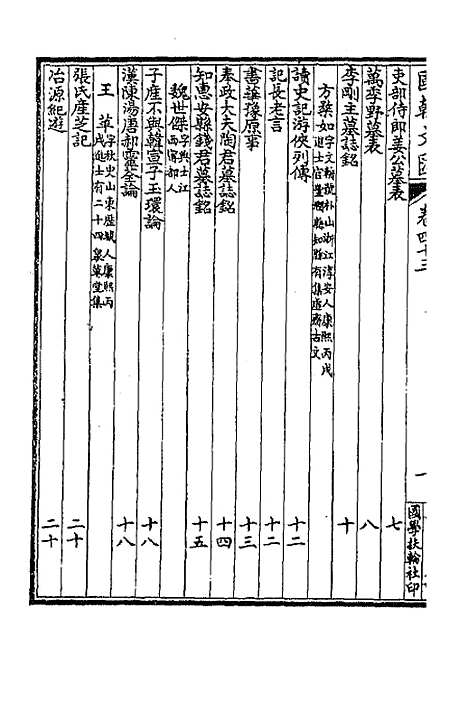 國朝文匯 卷四十三 一 國學扶輪社印
吏部侍郎姜公墓表 七
萬季野墓表 八
李剛主墓誌銘 十
方楘如 字文輈號朴山浙江淳安人康熙丙戌進士官豐潤縣知縣有集虛齋古文
讀史記游俠列傳 十二
記長老言 十二
書葉豫原事 十三
奉政大夫陶君墓誌銘 十四
知惠安縣錢君墓誌銘 十五
魏世傑 字興士江西寧都人
子產不與韓宣子玉環論 十八
漢陳湯唐郝靈荃論 十八
王苹 字秋史山東歷城人康熙丙戌進士有二十四泉草堂集
張氏產芝記 二十
冶源紀遊 二十